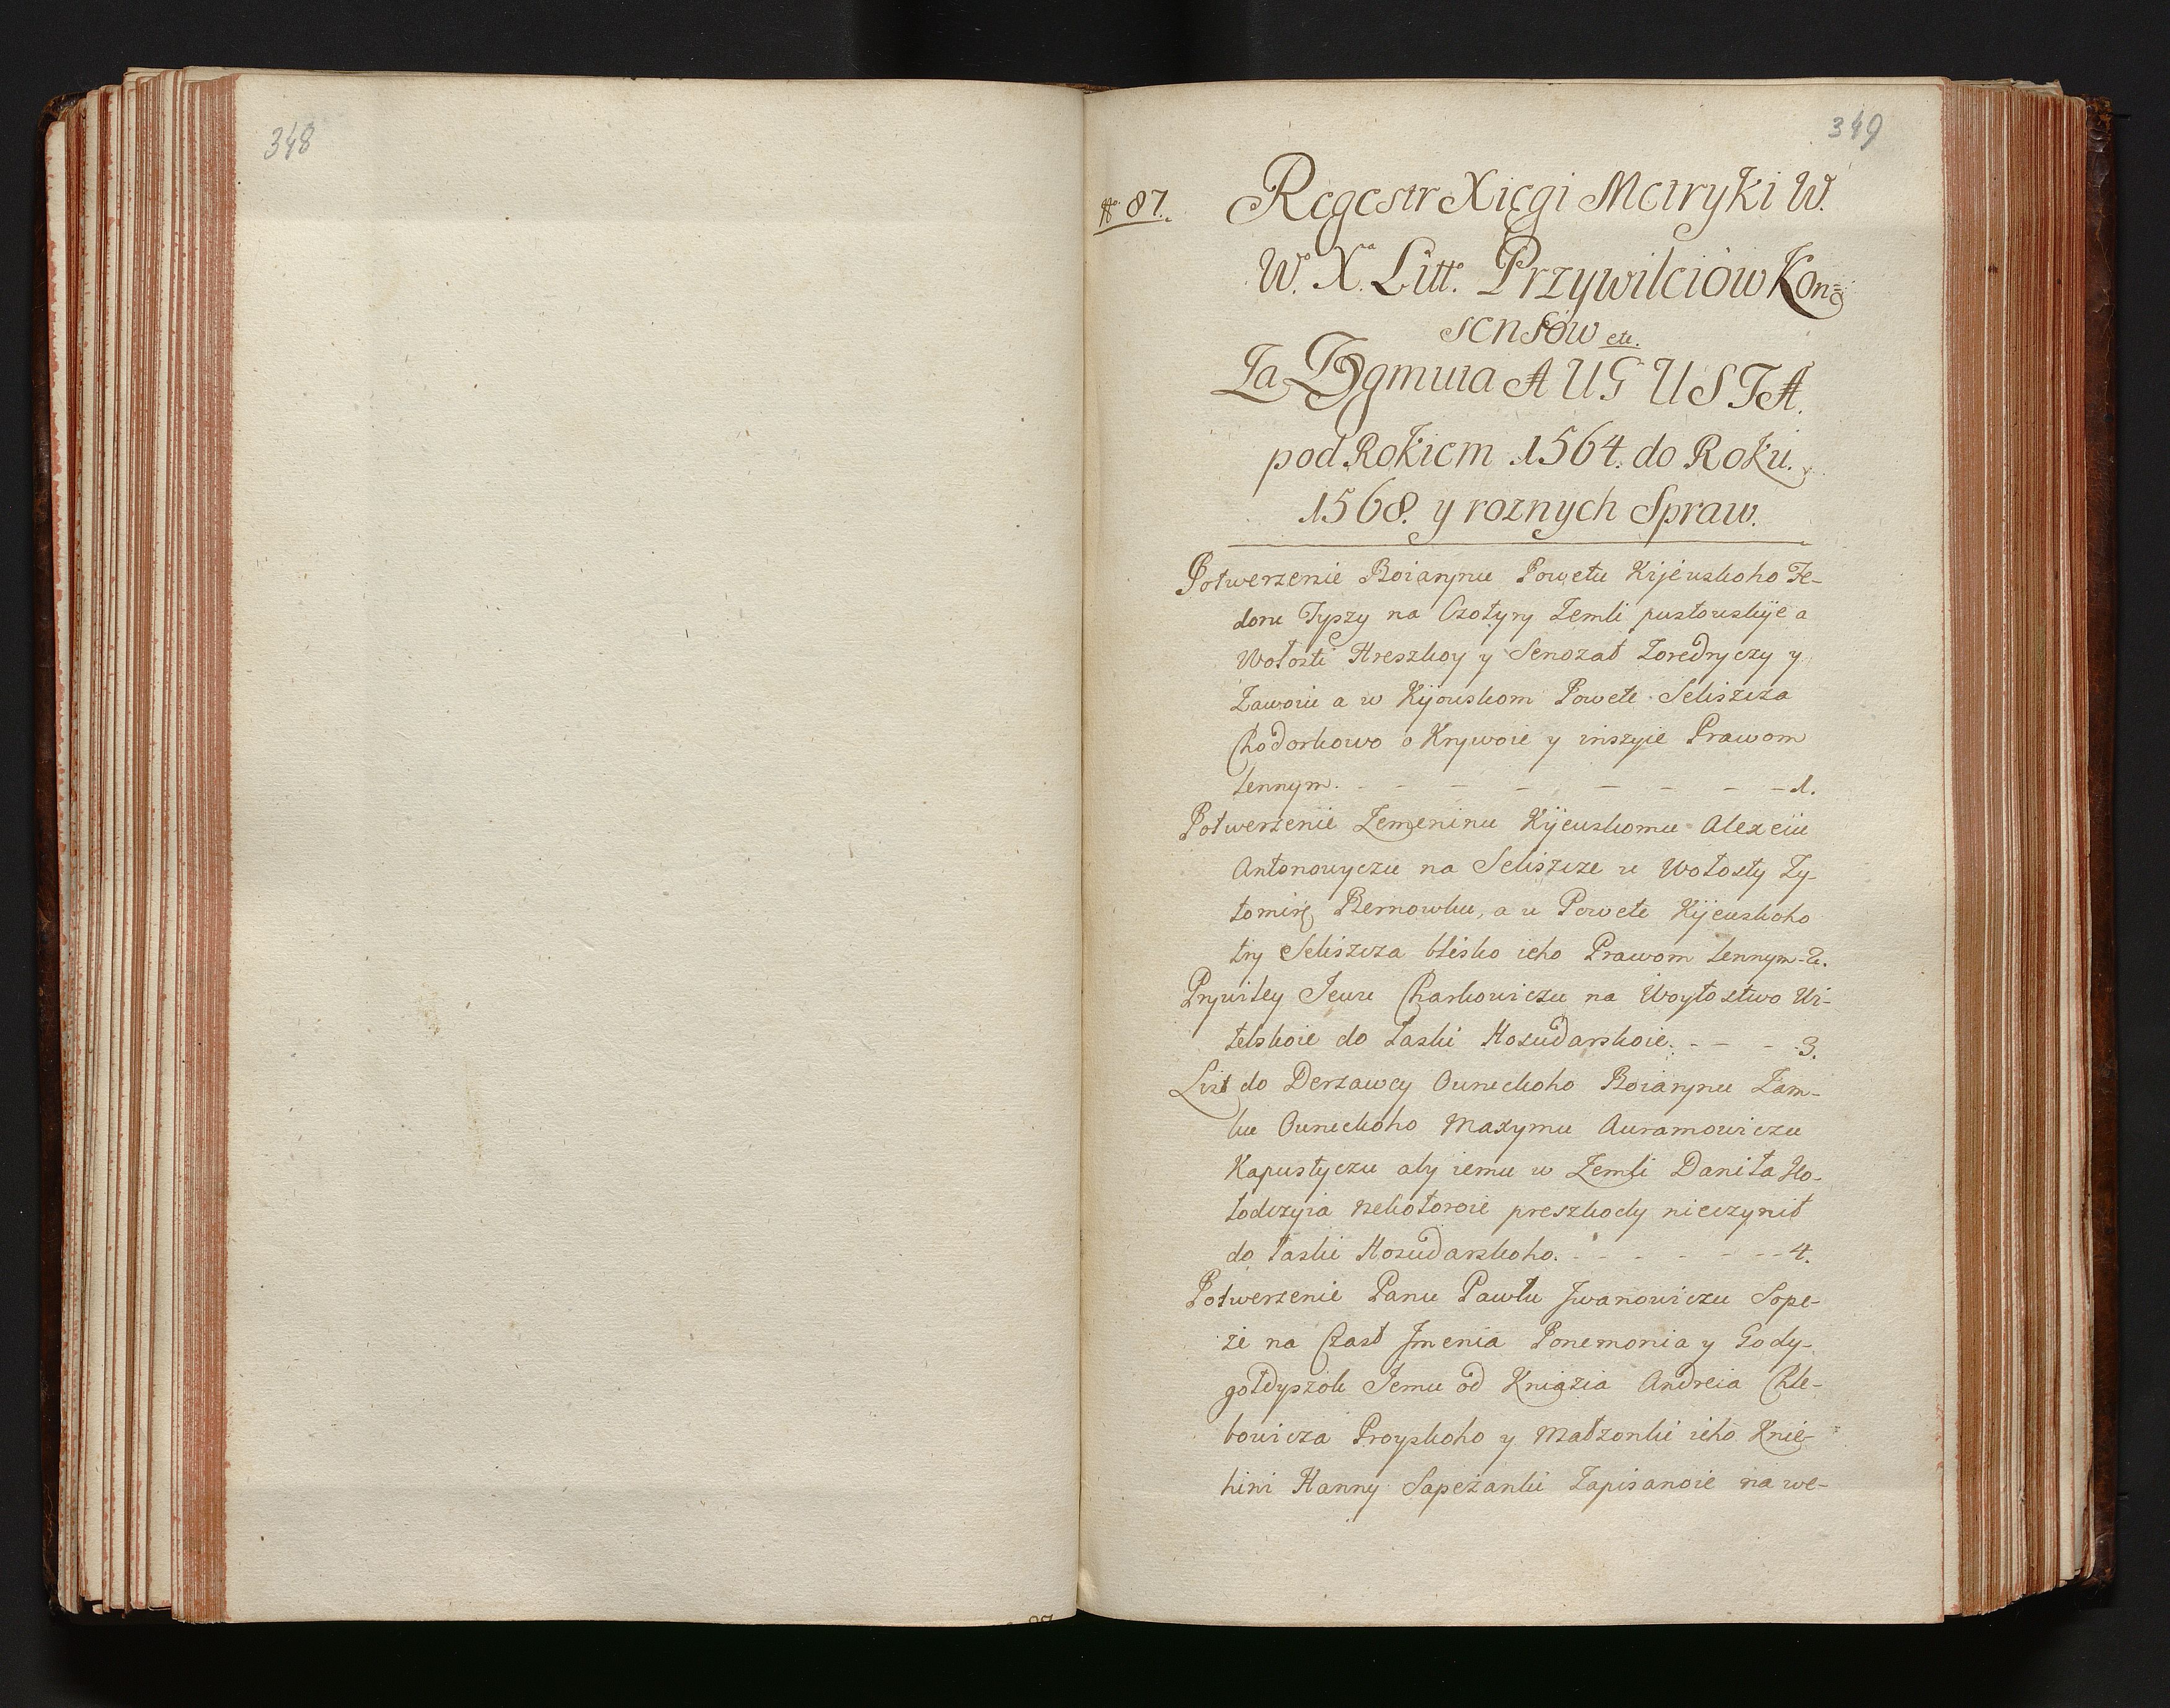 348
349
N° 87.
Regestr Xięgi Metryki W.
W° X.ª Litt° Przywileiow Kon=
sensow etc.
Za Zygmuta AUGUSTA.
pod Rokiem 1564. do Roku.
1568. y roznych Spraw.
Potwerzenie Boiarynu Powetu Kijeuskoho Fe-
doru Tyszy na Czotyry Zemli pustouskije a
Wołosti Hreszkoy y Senozat Zoredryczy y
Zawoiu a w Kijouskom Powete Seliszcza
Chodorkowo o Krywoie y inszyie Prawom
lennym. - - - - - - - 1.
Potwerzenie Zemeninu Kijeuskomu Alexeiu
Antonowyczu na Seliszcze u Wołosty Zy-
tomirę Bernowku, a u Powete Kijeuskoho
try Seliszcza blisko ieho Prawom lennym - 2.
Prywiley Jeuu Charkowiczu na Woytostwo Wi-
tebskoie do łaski Hosudarskoie. - - - 3.
List do Derzawcy Ouruckoho Boiarynu Zam-
ku Ouruckoho Maxymu Auramowiczu
Kapustyczu aby iemu w Zemli Daniła Ho-
łodczyia nekotoroie preszkody nieczynił
do łaski Hosudarskoho. - - - - - - 4.
Potwerzenie Panu Pawłu Jwanowiczu Sope-
że na Czast Jmenia Ponemonia y Gody-
gołdyszok Jemu od Kniazia Andreia Chle-
bowicza Proyskoho y Małzonki ieho Knie-
hini Hanny Sapeżanki Zapisanoie na we-